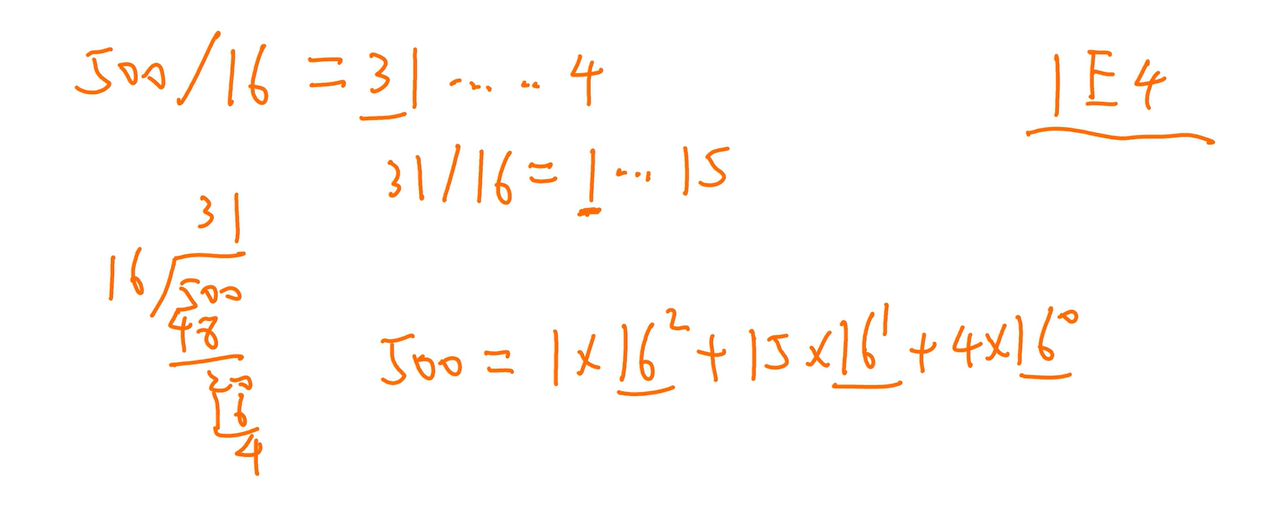 500/16 = 31 ..... 4
1E4
31/16 = 1 ... 15
31
16/500
48
20
16
4
500 = 1×16² + 15×16¹ + 4×16⁰